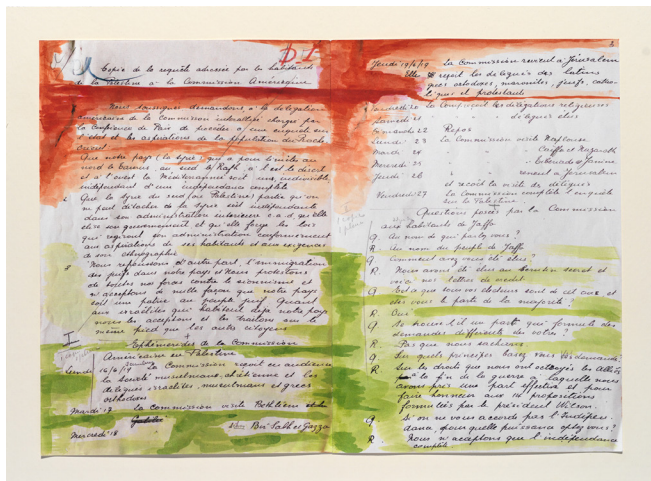 D-I
Copie de la requête adressée par les habitants
de la Palestine à la Commission Américaine
Nous soussignés demandons à la délégation
américaine de la Commission interalliée chargée par
la Conférence de Paix de procéder à une enquête sur
l'état et les aspirations de la population du
Que notre pays (la Syrie) qui a pour limites au
nord le Taurus, au sud le Rafh, à l'est le désert
et à l'ouest la Méditerranée soit une, indivisible
indépendant d'une indépendance complète
Que la Syrie du sud (ou Palestine) partie qu'on
ne peut détacher de la Syrie soit indépendante
dans son administration intérieure c.à.d. qu'elle
élise son gouvernement et qu'elle forge les lois
qui régiront son administration conformément
aux aspirations de ses habitants et aux exigences
de son ethnographie
3 Nous repoussons d'autre part l'immigration
des juifs dans notre pays et nous protestons
de toutes nos forces contre le sionisme et
n'acceptons de nulle façon que notre pays
soit un patrie au peuple juif. Quant
aux israélites qui habitent déjà notre pays
nous les acceptons et les traitons sur le
même pied que les autres citoyens
I Ephémérides de la Commission
Américaine en Palestine
Lundi 16/6/19 La Commission reçoit en audience
la société musulmane, chrétienne et les
délégués israélites, musulmans et grecs
orthodoxes
Mardi 17 la Commission visite Bethléem
Mercredi 18 Bir Sabh et Gazza
2
Jeudi 19/6/19 La Commission revient à Jérusalem
Elle reçoit les délégués des latins
grecs ortodoxes, maronites, juifs, catho
liques et protestants
Samedi 21 délégués élus
Dimanche 22 Repos
Lundi 23 La Commission visite Naplouse
Mardi 24 Caiffa et Nazareth
Mercredi 25
Jeudi 26 revient à Jérusalem
et reçoit la visite de délégués
Vendredi 27 La Commission complète l'enquête
sur la Palestine
Questions posées par la Commission
aux habitants de Jaffa
Q. Au nom de qui parlez-vous?
R. Au nom du peuple de Jaffa
Q. Comment avez vous été élus?
R. Nous avons été élus au scrutin secret et
voici nos lettres de mandat
Q Est-ce que tous vos électeurs sont de cet avis et
êtes vous le parti de la majorité?
R. Oui
Q. Se trouve t'il un parti qui formule des
demandes différentes des vôtres?
R. Pas que nous sachions
Q. Sur quels principes basez vous vos demandes?
R. Sur les droits que nous ont octroyés les Alliés
à la fin de la guerre à laquelle nous
avons pris une part effective et pour
faire honneur aux 14 propositions
formulées par le président Wilson.
Q Si on ne vous accorde pas l'Indépen
dance, pour quelle puissance optez vous?
R Nous n'acceptons que l'indépendance
complète.